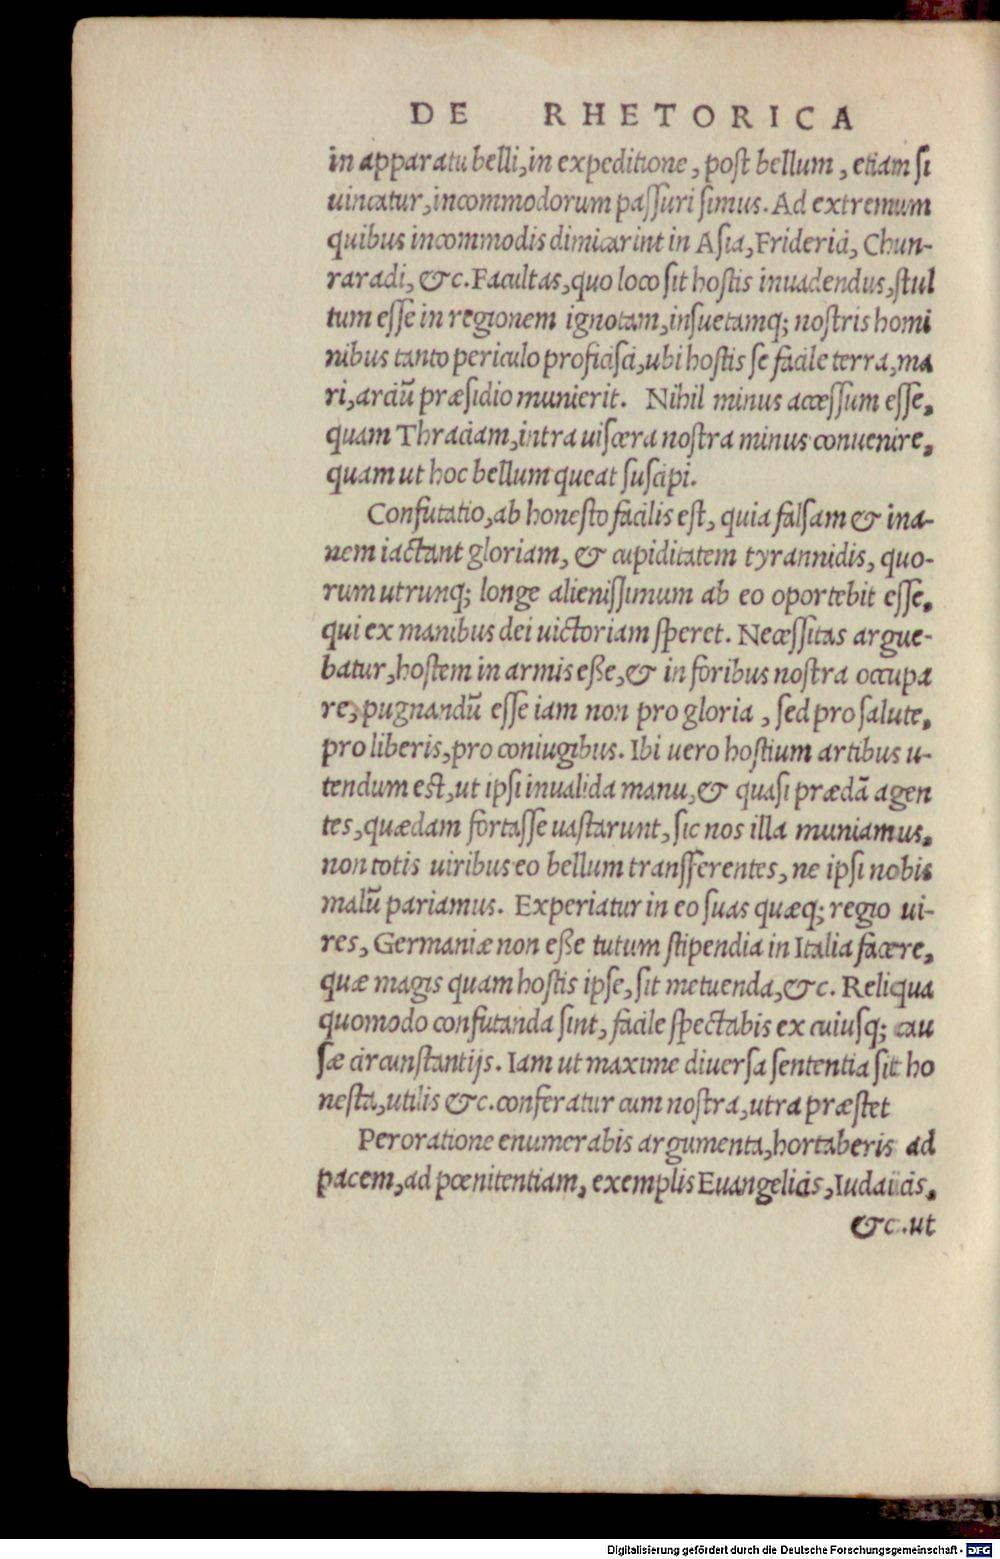 DE RHETORICA
in apparatu belli, in expeditione, post bellum, etiam si
uincatur, incommodorum passuri simus. Ad extremum
quibus incommodis dimicarint in Asia, Friderici, Chun-
raradi, &c. Facultas, quo loco sit hostis inuadendus, stul
tum esse in regionem ignotam, insuetamq; nostris homi
nibus tanto periculo proficisci, ubi hostis se facile terra, ma
ri, arciũ præsidio munierit. Nihil minus accessum esse,
quam Thraciam, intra uiscera nostra minus conuenire,
quam ut hoc bellum queat suscipi.
Confutatio, ab honesto facilis est, quia falsam & ina-
nem iactant gloriam, & cupiditatem tyrannidis, quo-
rum utrunq; longe alienissimum ab eo oportebit esse,
qui ex manibus dei uictoriam speret. Necessitas argue-
batur, hostem in armis eße, & in foribus nostra occupa
re, pugnandũ esse iam non pro gloria, sed pro salute,
pro liberis, pro coniugibus. Ibi uero hostium artibus u-
tendum est, ut ipsi inualida manu, & quasi prædã agen
tes, quædam fortasse uastarunt, sic nos illa muniamus,
non totis uiribus eo bellum transferentes, ne ipsi nobis
malũ pariamus. Experiatur in eo suas quæq; regio ui-
res, Germaniæ non eße tutum stipendia in Italia facere,
quæ magis quam hostis ipse, sit metuenda, &c. Reliqua
quomodo confutanda sint, facile spectabis ex cuiusq; cau
sæ circunstantijs. Iam ut maxime diuersa sententia sit ho
nesta, utilis &c. conferatur cum nostra, utra præstet
Peroratione enumerabis argumenta, hortaberis ad
pacem, ad pœnitentiam, exemplis Euangelicis, Iudaicis,
&c. ut
Digitalisierung gefördert durch die Deutsche Forschungsgemeinschaft - DFG